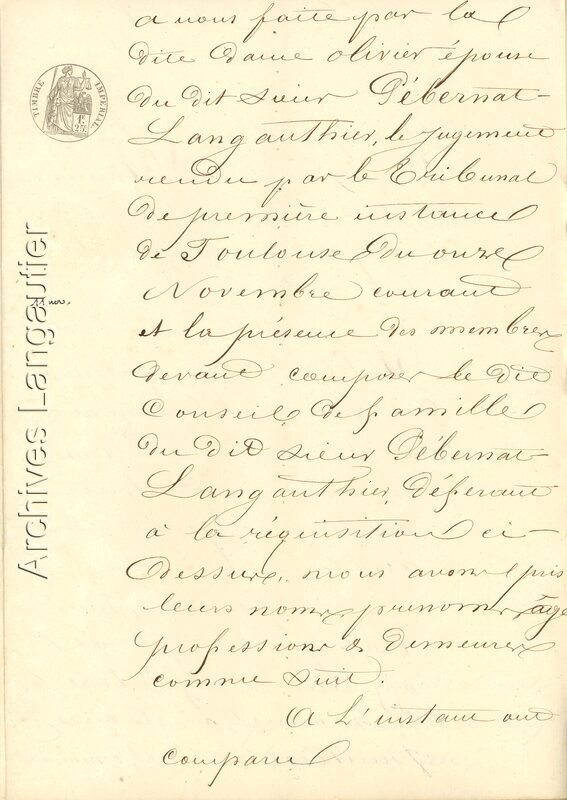 a nous faite par la
dite dame olivier épouse
du dit sieur Pébernat-
Langauthier, le jugement
rendu par le Tribunal
de première instance
de Toulouse du onze
Novembre courant
et la présence des membres
devant composer le dit
Conseil de famille
du dit sieur Pébernat-
Langauthier, déférant
à la réquisition ci-
dessus, nous avons pris
leurs noms, prénoms, âge
professions & demeures
comme suit.
A L'instant ont
comparu
TIMBRE IMPERIAL
1F
25C
11 nov.
Archives Langautier